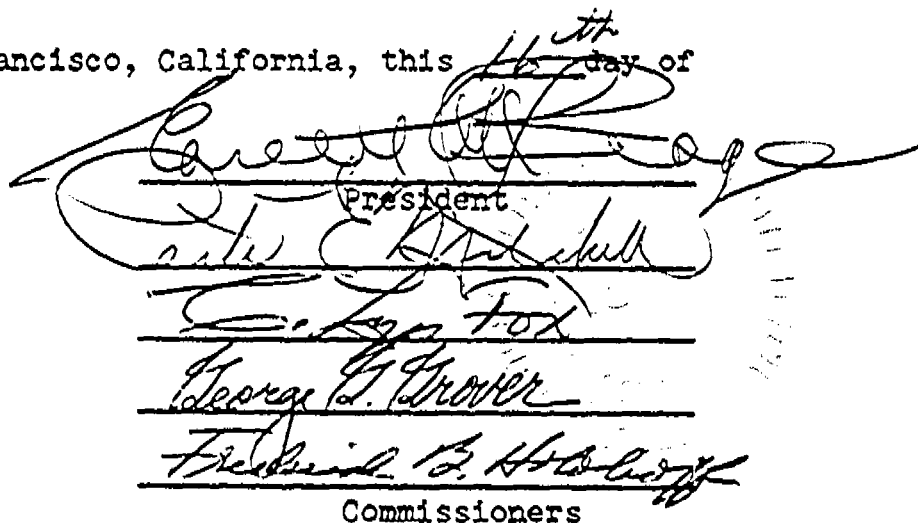 ancisco, California, this 16th day of
President
C. Lyn Fox
George G. Grover
Frederick B. Holoboff
Commissioners